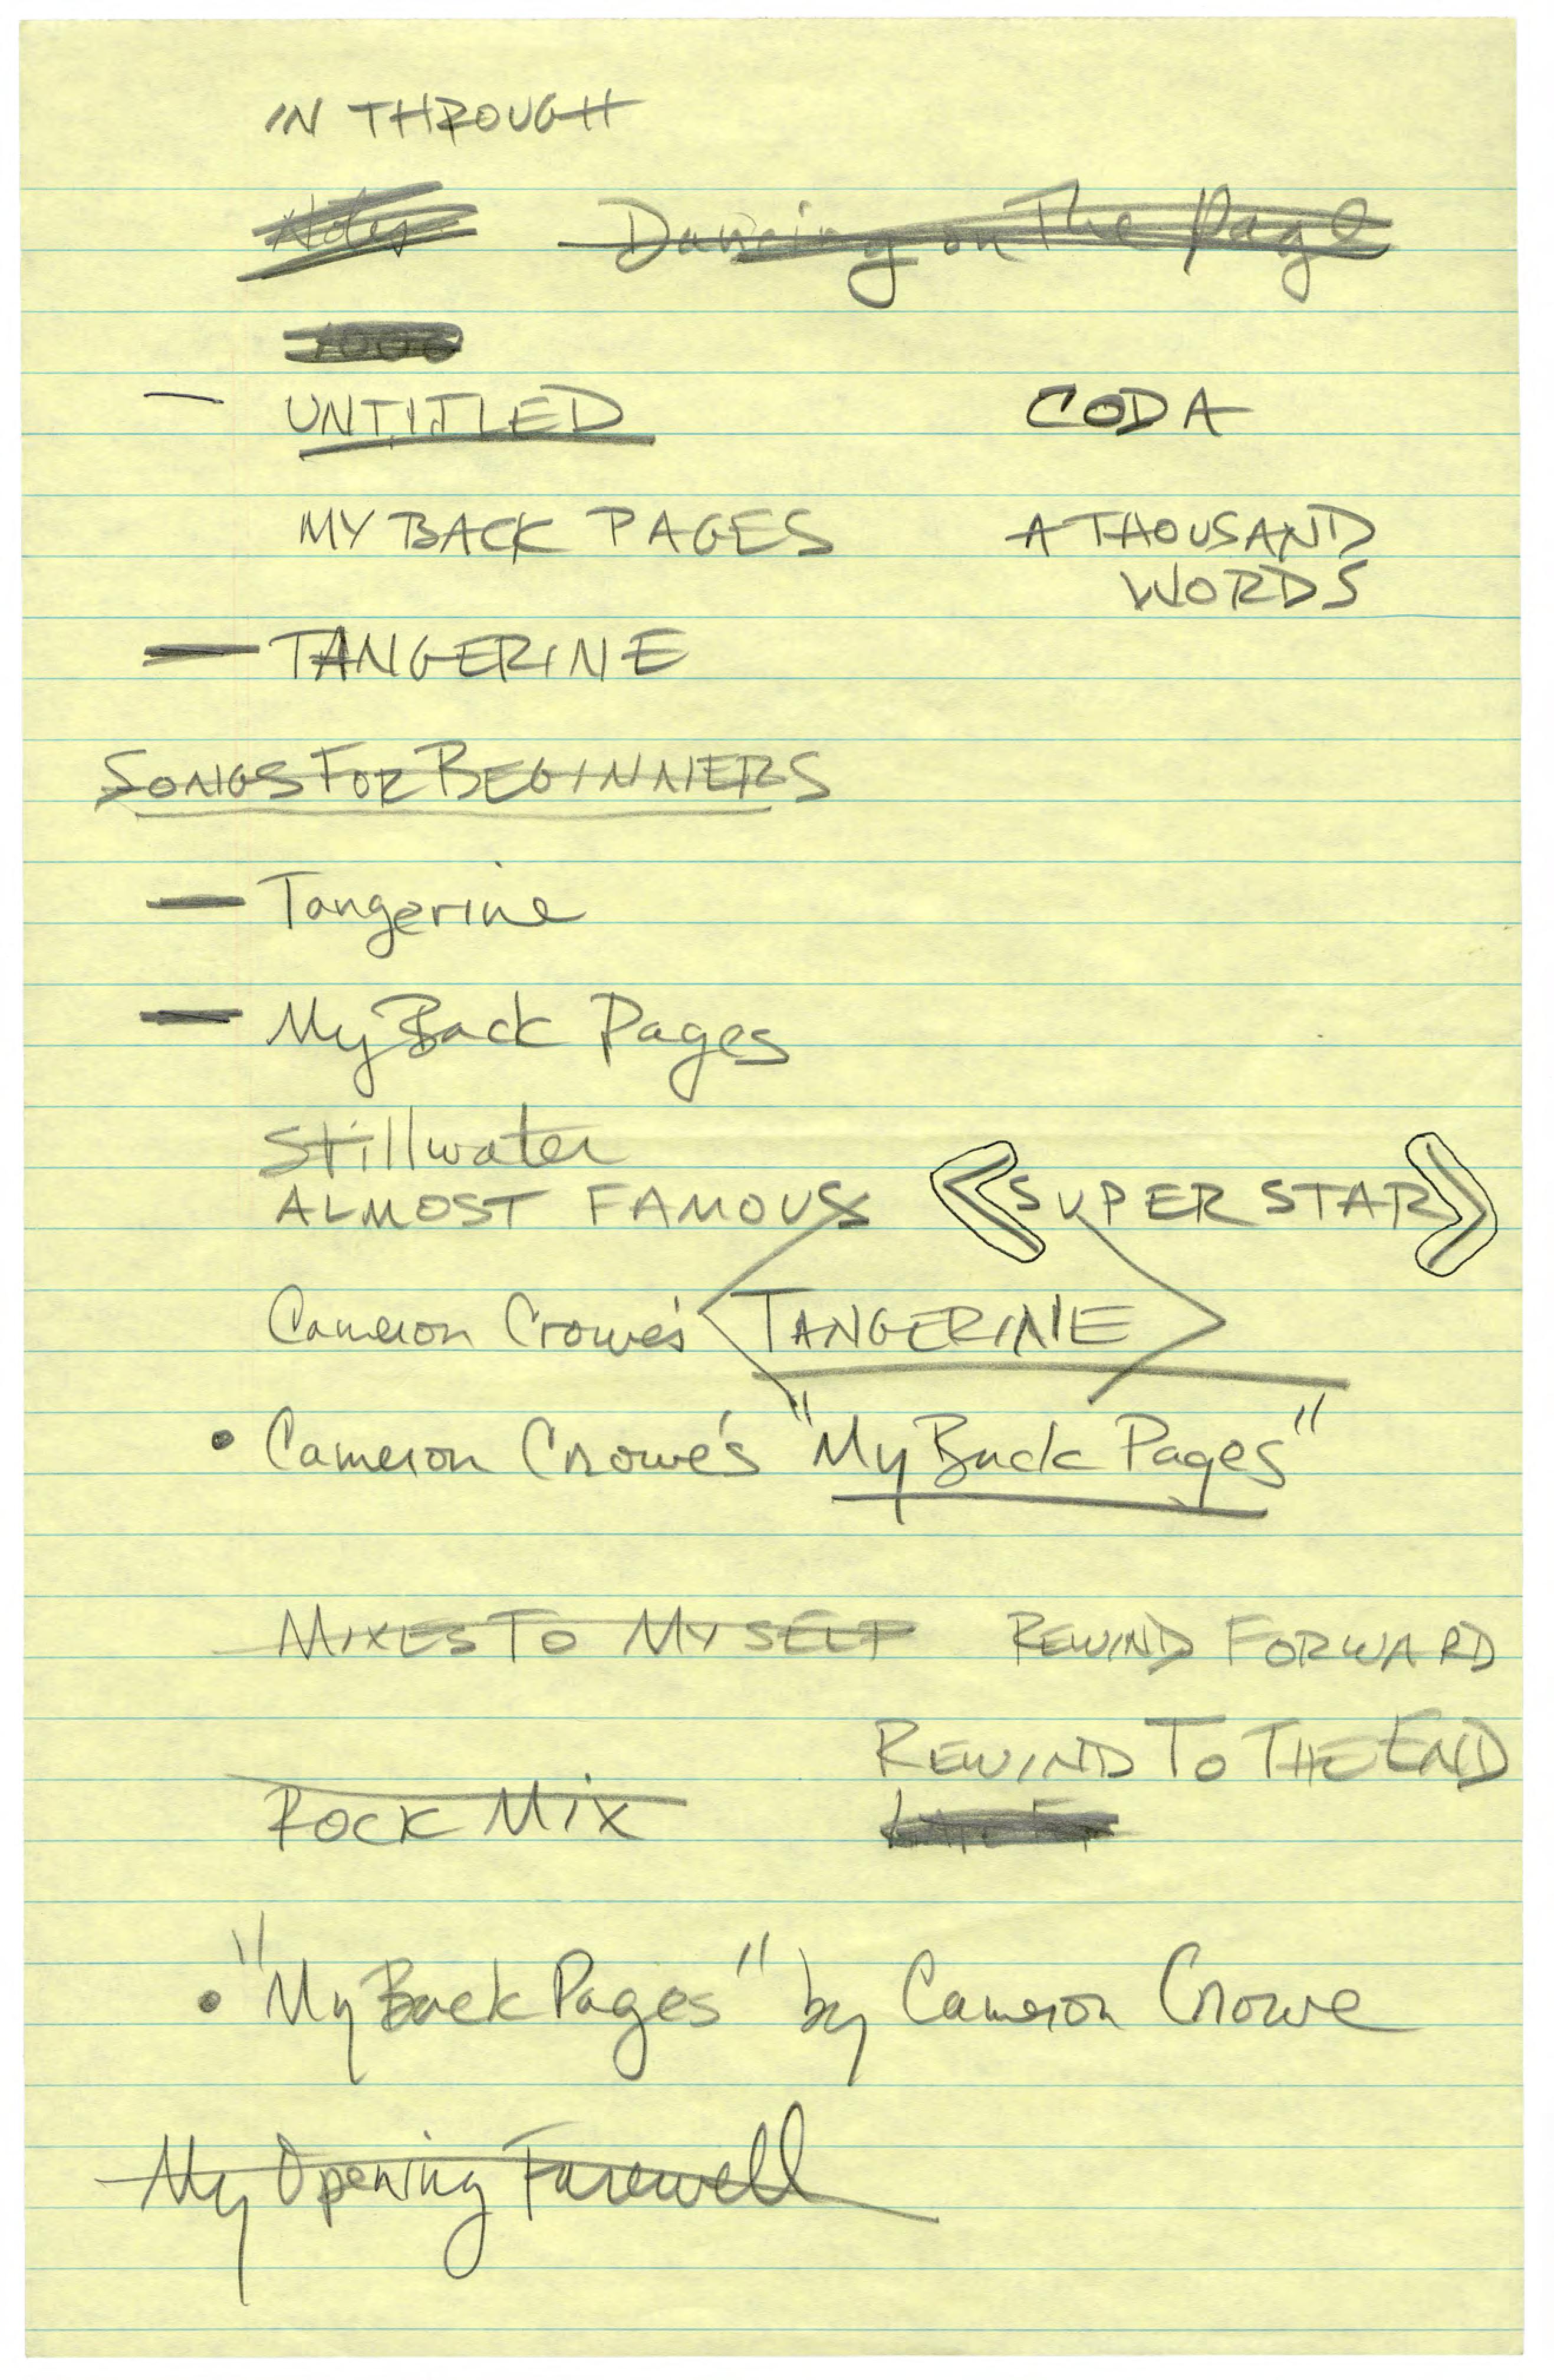 IN THROUGH
Notes Dancing on The Page
UNTITLED CODA
MY BACK PAGES A THOUSAND
WORDS
TANGERINE
SONGS FOR BEGINNERS
Tangerine
My Back Pages
Stillwater
ALMOST FAMOUS <SUPERSTAR>
Cameron Crowe's <TANGERINE>
• Cameron Crowe's "My Back Pages"
MIXES TO MYSELF REWIND FORWARD
REWIND TO THE END
ROCK MIX
• "My Back Pages" by Cameron Crowe
My Opening Farewell